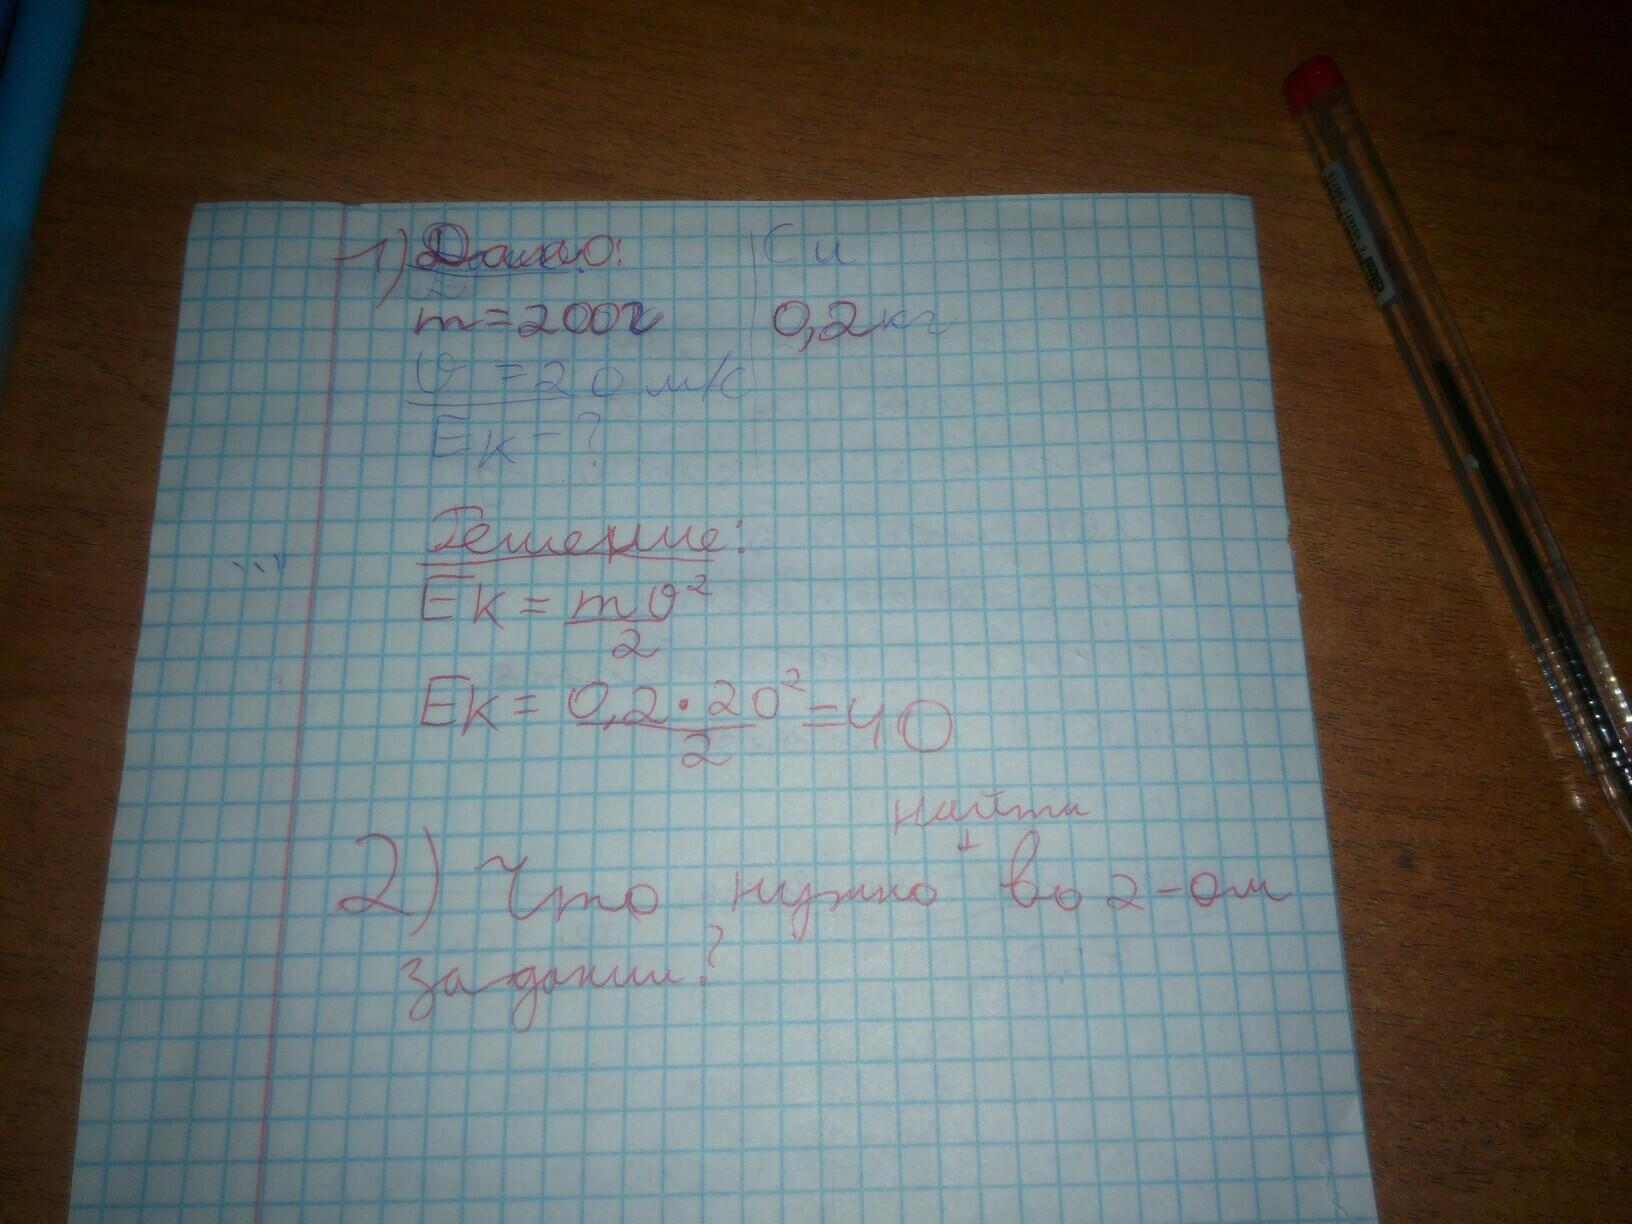 1) Дано: Си
m=200г 0,2кг
υ=20 м/с
Eк-?
Решение:
Eк = mυ²/2
Eк = 0,2·20²/2 = 40
найти
2) Что нужно во 2-ом
задании?